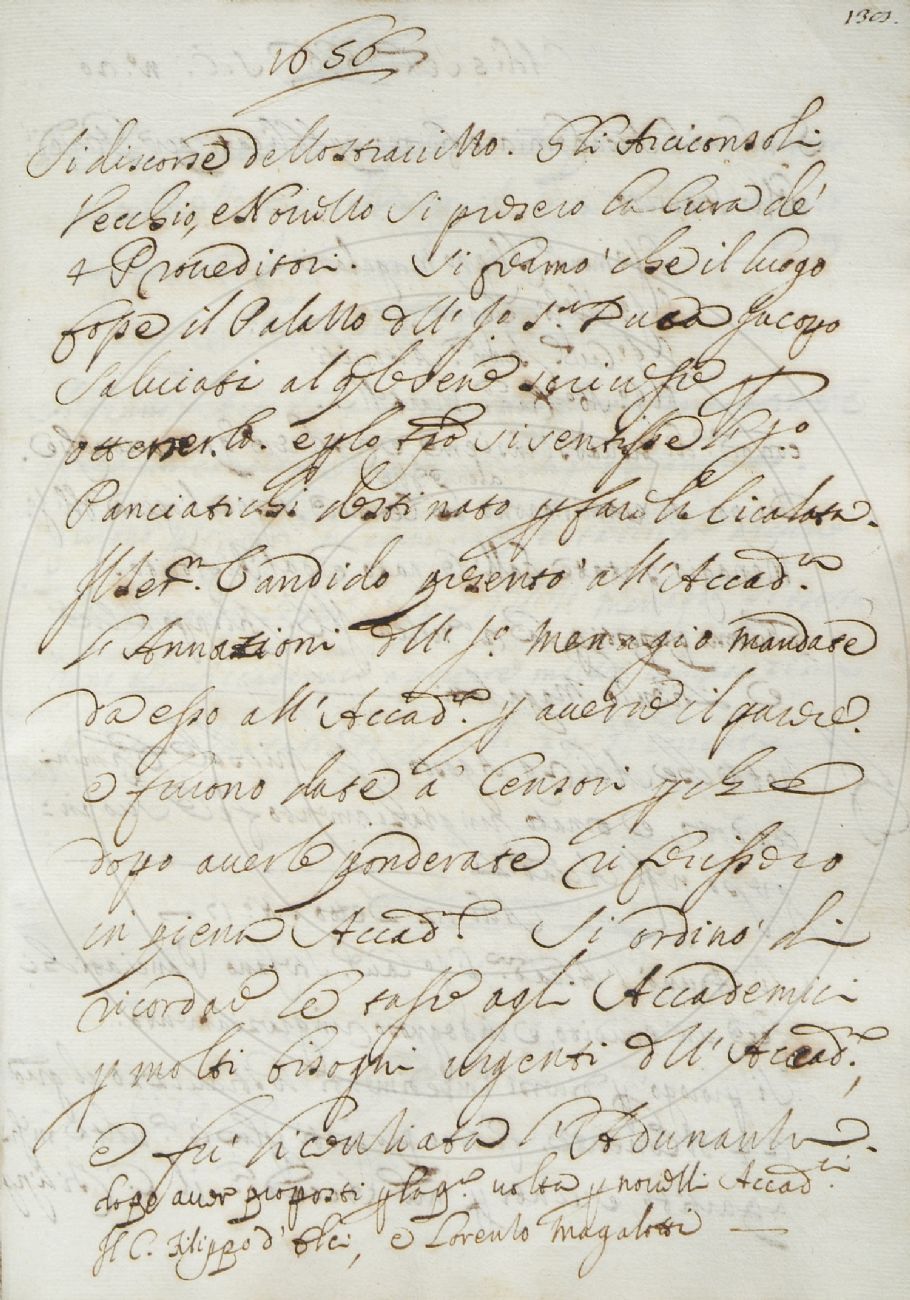 1656
Si discorse dello stravizzo. Gli Arciconsoli
Vecchio, e Novello si presero la cura de'
4 Proveditori. Si fermò che il luogo
fosse il Palazzo dell' Ill.mo S.r Duca Jacopo
Salviati al qle se ne scrivesse p
ottenerlo. e p lo stesso si sentisse l'Ill.mo
Panciatichi destinato p fare la Cicalata.
Il Seg.rio Candido presentò all' Accad.a
l'Annotazioni dell' Ill.mo Menagio mandate
da esso all' Accad.a p averne il parere.
e furono date a Censori p che
dopo averle ponderate riferissero
in piena Accad.a Si ordinò di
ricordare le tasse agli Accademici
p molti bisogni urgenti dell' Accad.a,
e fù licenziata l'Adunanza.
dopo aver proposti p la p.a volta p novelli Accad.ci
Il C. Filippo d' Elci, e Lorenzo Magalotti